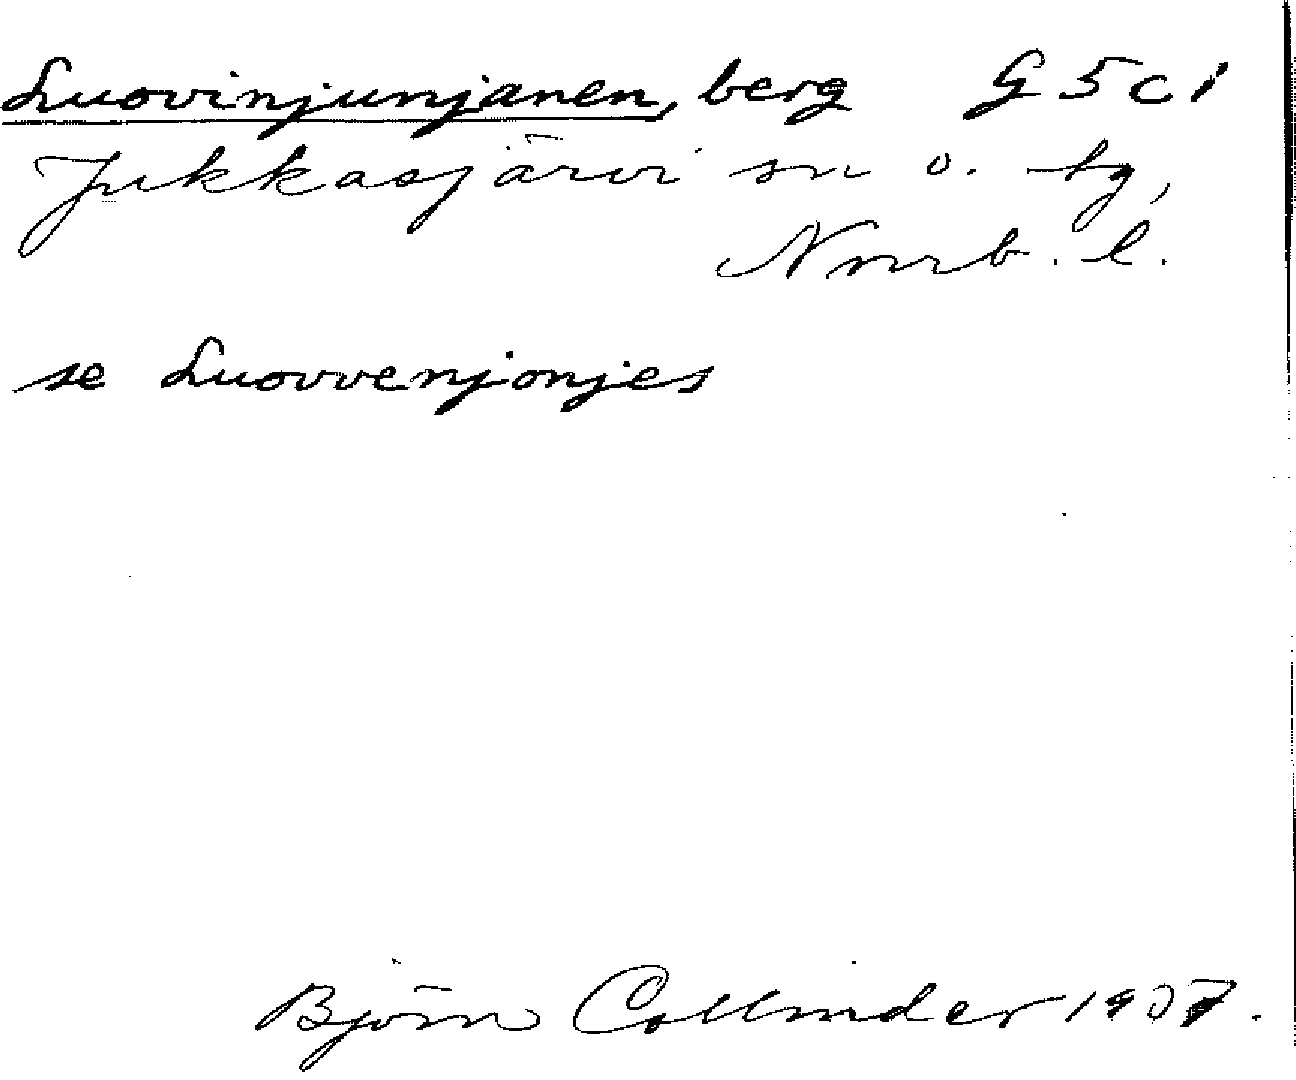 Luovinjunjanen, berg G5c1
Jukkasjärvi sn o. tg,
Norrb. l.
se Luovvenjonjes
Björn Collinder 1937.